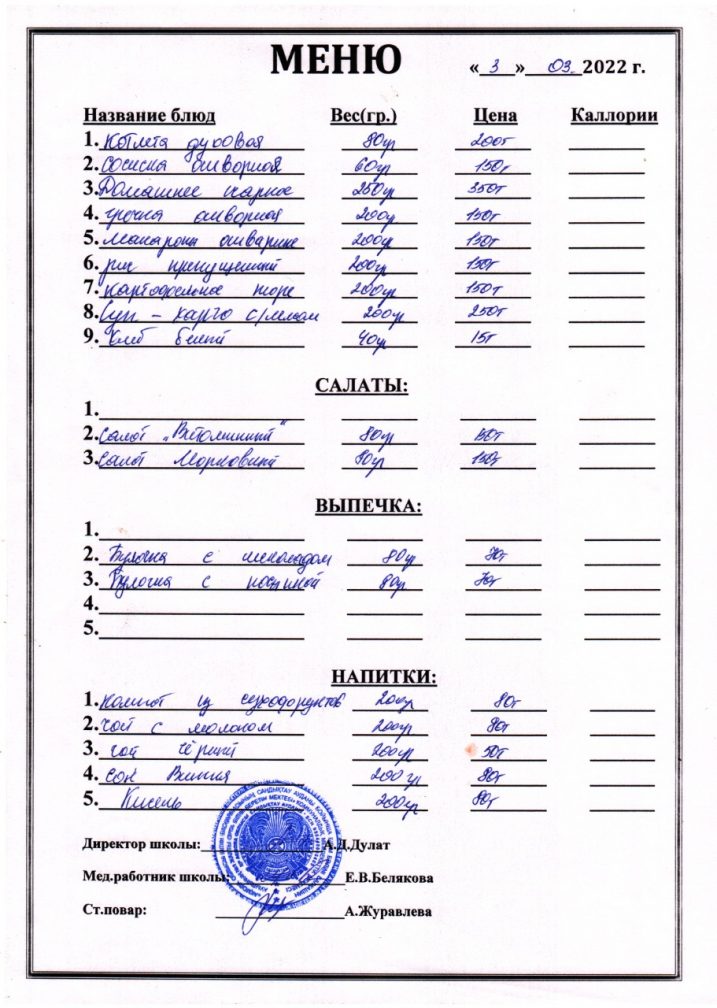 МЕНЮ «3» 03. 2022 г.
Название блюд Вес(гр.) Цена Каллории
1. Котлета духовая 80гр 200т
2. Сосиска отварная 60гр 150т
3. Домашнее жаркое 250гр 350т
4. гречка отварная 200гр 150т
5. Макароны отварные 200гр 150т
6. рис припущенный 200гр 150т
7. Картофельное пюре 200гр 150т
8. Суп – харчо с/мясом 200гр 250т
9. Хлеб белый 40гр 15т
САЛАТЫ:
1.
2. Салат „Витаминный" 80гр
3. Салат Морковный 80гр 150т
ВЫПЕЧКА:
1.
2. Булочка с шоколадом 80гр 70т
3. Булочка с посыпкой 80гр 70т
4.
5.
НАПИТКИ:
1. Компот из сухофруктов 200гр 80т
2. Чай с молоком 200гр 80т
3. чай чёрный 200гр 50т
4. Сок 200гр 80т
5. Кисель 200гр 80т
Директор школы: А.Д.Дулат
Мед.работник школы: Е.В.Белякова
Ст.повар: А.Журавлева